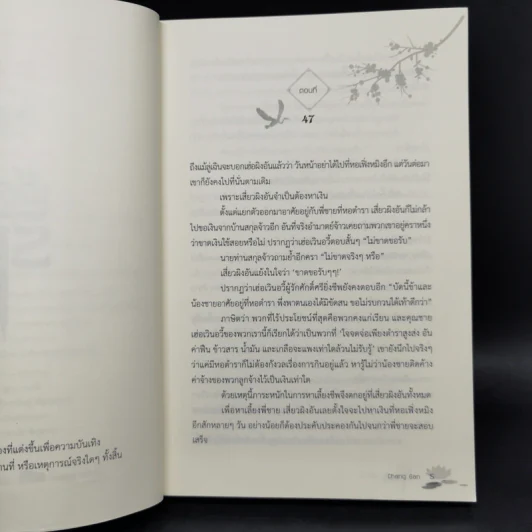 องที่แต่งขึ้นเพื่อความบันเทิง
านที่ หรือเหตุการณ์จริงใดๆ ทั้งสิ้น
ตอนที่
47
ถึงแม้ลู่เฉินจะบอกเฮ่อผิงอันแล้วว่า วันหน้าอย่าได้ไปที่หอเฟิ่งหมิงอีก แต่วันต่อมา
เขาก็ยังคงไปที่นั่นตามเดิม
เพราะเสี่ยวผิงอันจำเป็นต้องหาเงิน
ตั้งแต่แยกตัวออกมาอาศัยอยู่กับพี่ชายที่หอตำรา เสี่ยวผิงอันก็ไม่กล้า
ไปขอเงินจากบ้านสกุลจ้าวอีก อันที่จริงอำมาตย์จ้าวเคยถามพวกเขาอยู่คราหนึ่ง
ว่าขาดเงินใช้สอยหรือไม่ ปรากฏว่าเฮ่อเวินอวี้ตอบสั้นๆ “ไม่ขาดขอรับ”
นายท่านสกุลจ้าวถามย้ำอีกครา “ไม่ขาดจริงๆ หรือ”
เสี่ยวผิงอันแย้งในใจว่า ‘ขาดขอรับๆๆ!’
ปรากฏว่าเฮ่อเวินอวี้ผู้รักศักดิ์ศรียิ่งชีพยังคงตอบอีก “บัดนี้ข้าและ
น้องชายอาศัยอยู่ที่หอตำรา พึ่งพาตนเองได้มิขัดสน ขอไม่รบกวนใต้เท้าดีกว่า”
ภาษิตว่า พวกที่ไร้ประโยชน์ที่สุดคือพวกคงแก่เรียน และคุณชาย
เฮ่อเวินอวี้ของพวกเรานี้ก็เรียกได้ว่าเป็นพวกที่ ‘ใจจดจ่อเพียงตำราสูงส่ง อัน
ค่าฟืน ข้าวสาร น้ำมัน และเกลือจะแพงเท่าใดล้วนไม่รับรู้’ เขายังนึกไปจริงๆ
ว่าแค่มีหอตำราก็ไม่ต้องกังวลเรื่องการกินอยู่แล้ว หารู้ไม่ว่าน้องชายติดค้าง
ค่าจ้างของพวกลูกจ้างไว้เป็นเงินเท่าใด
ด้วยเหตุนี้ภาระหนักในการหาเลี้ยงชีพจึงตกอยู่ที่เสี่ยวผิงอันทั้งหมด
เพื่อหาเลี้ยงพี่ชาย เสี่ยวผิงอันเลยตั้งใจจะไปหาเงินที่หอเฟิ่งหมิง
อีกสักหลายๆ วัน อย่างน้อยก็ต้องประคับประคองกันไปจนกว่าพี่ชายจะสอบ
เสร็จ